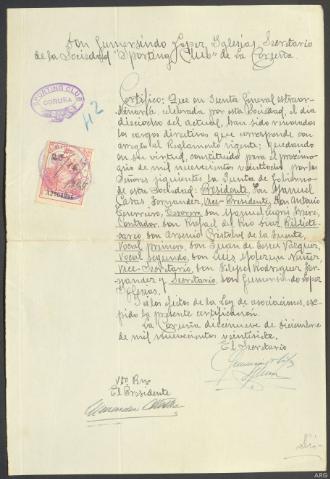 Don Gumersindo López Iglesias, Secretario
de la Sociedad "Sporting Club" de La Coruña
SPORTING CLUB
CORUÑA
Certifico: Que en Junta General extraor-
dinaria celebrada por esta Sociedad, el día
dieciocho del actual, han sido renovados
los cargos directivos que corresponde con
arreglo al Reglamento vigente; quedando
en su virtud, constituída para el próximo
año de mil novecientos veintiocho por los
Señores siguientes la Junta de Gobierno
de esta Sociedad: Presidente, Don Manuel
Casas Fernández, Vice-Presidente, Don Antonio
Tesorero, Don Manuel
Contador, Don Rafael del Río Bibliote-
cario, Don Arsenio Cristóbal de la Fuente
Vocal primero, Don Juan de Vázquez,
Vocal segundo, Don Luis Núñez,
Vice-Secretario, Don Felipe Rodríguez Fer-
nández y Secretario, Don Gumersindo López
Iglesias.
A los efectos de la Ley de asociaciones, ex-
pido la presente certificación.
La Coruña diecinueve de diciembre
de mil novecientos veintisiete.
El Secretario
Vto. Bno.
El Presidente